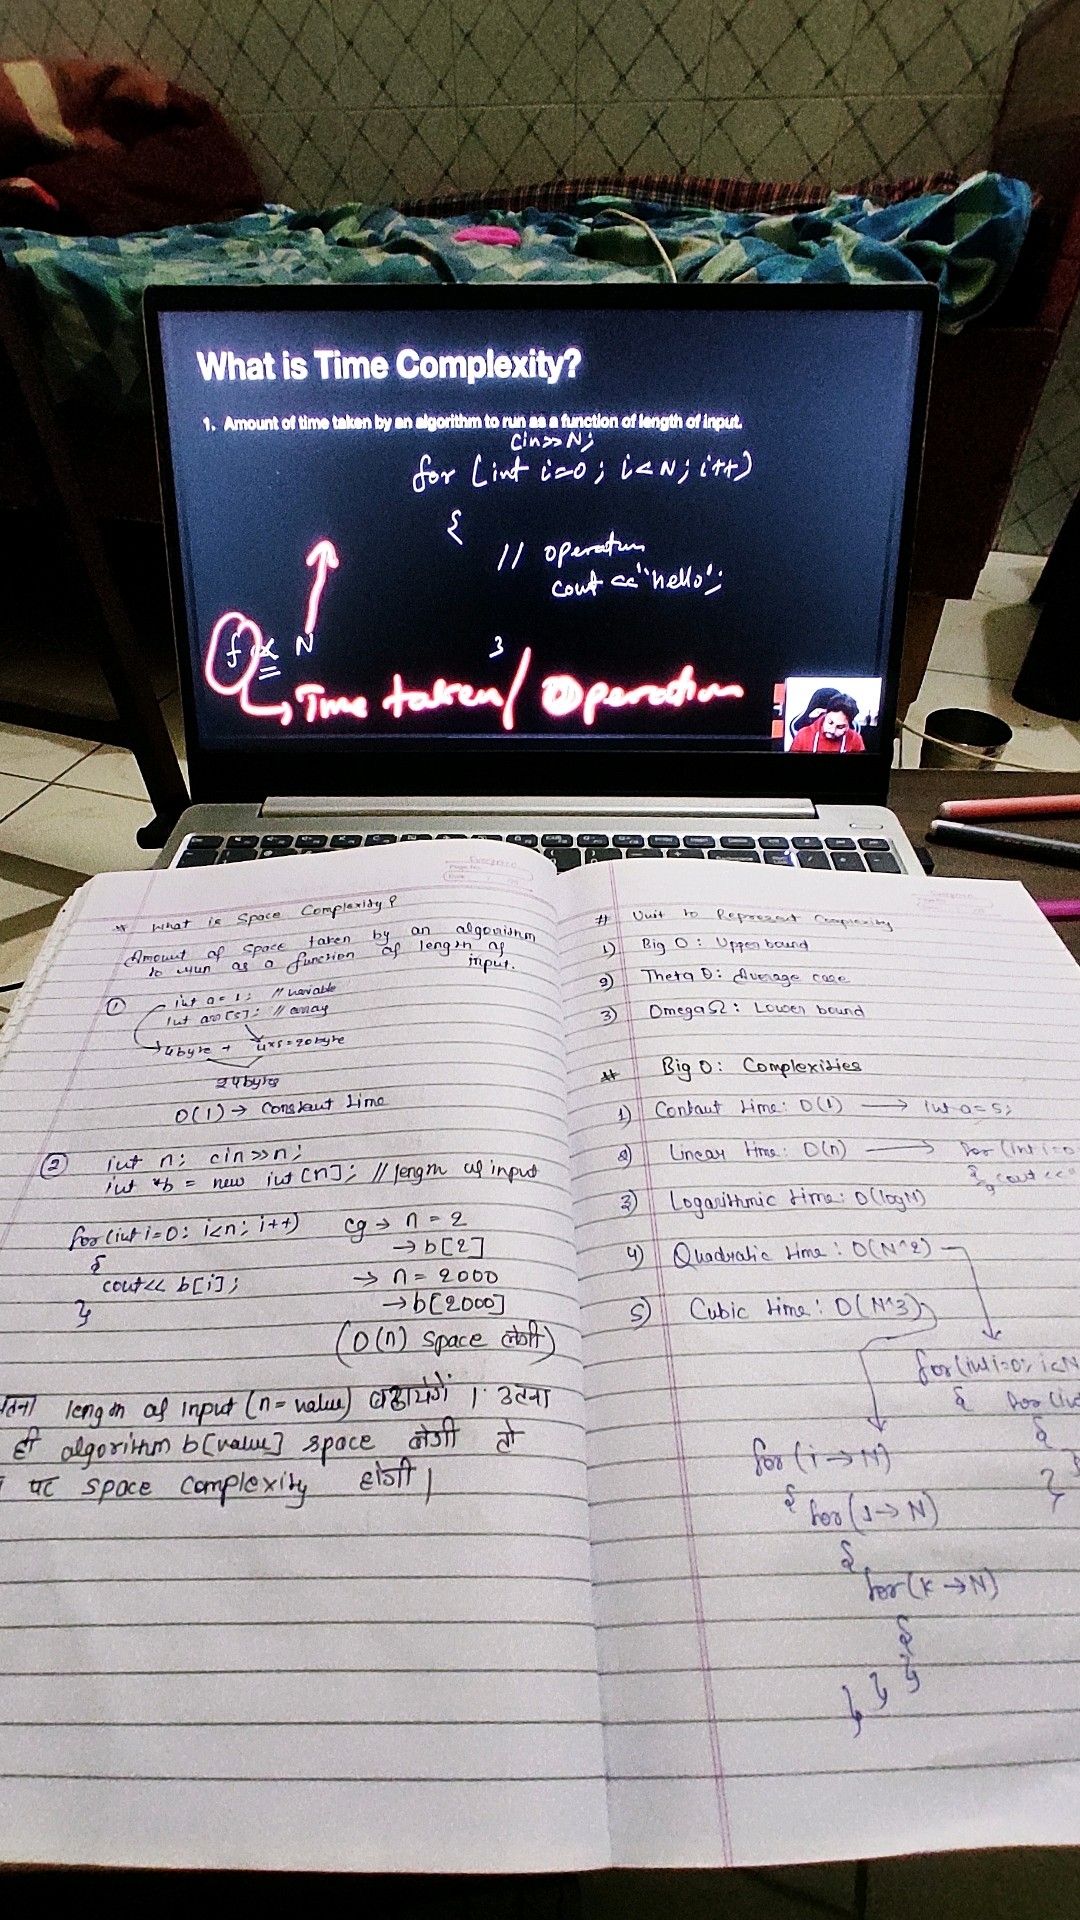 What is Time Complexity?
1. Amount of time taken by an algorithm to run as a function of length of input.
cin>>N;
for (int i=0; i<N; i++)
{
// operation
cout <<"hello";
}
f ∝ N
Time taken / Operation
* What is Space Complexity?
Amount of space taken by an algorithm
to run as a function of length of
input.
① int a = 1; // variable
int arr[5]; // array
4byte + 4x5=20byte
24byte
O(1) → Constant time
② int n; cin>>n;
int *b = new int [n]; // length of input
for(int i=0; i<n; i++)
{
cout<< b[i];
}
eg → n = 2
→ b[2]
→ n = 2000
→ b[2000]
(O(n) space लेगी)
length of input (n = value) बढायेगें । उतना
ही algorithm b[value] space लेगी तो
पर space complexity होगी |
# Unit to Represent Complexity
1) Big O : Upper bound
2) Theta θ : Average case
3) Omega Ω : Lower bound
# Big O : Complexities
1) Contant time : O(1) → int a = 5;
2) Linear time : O(n) → for (int i=0
{ cout <<
3) Logarithmic time : O(logN)
4) Quadratic time : O(N^2)
5) Cubic time : O(N^3)
for(int i=0; i<N
{ for (int
{
}
for (i → N)
{ for (J → N)
{
for (K → N)
{
} } }